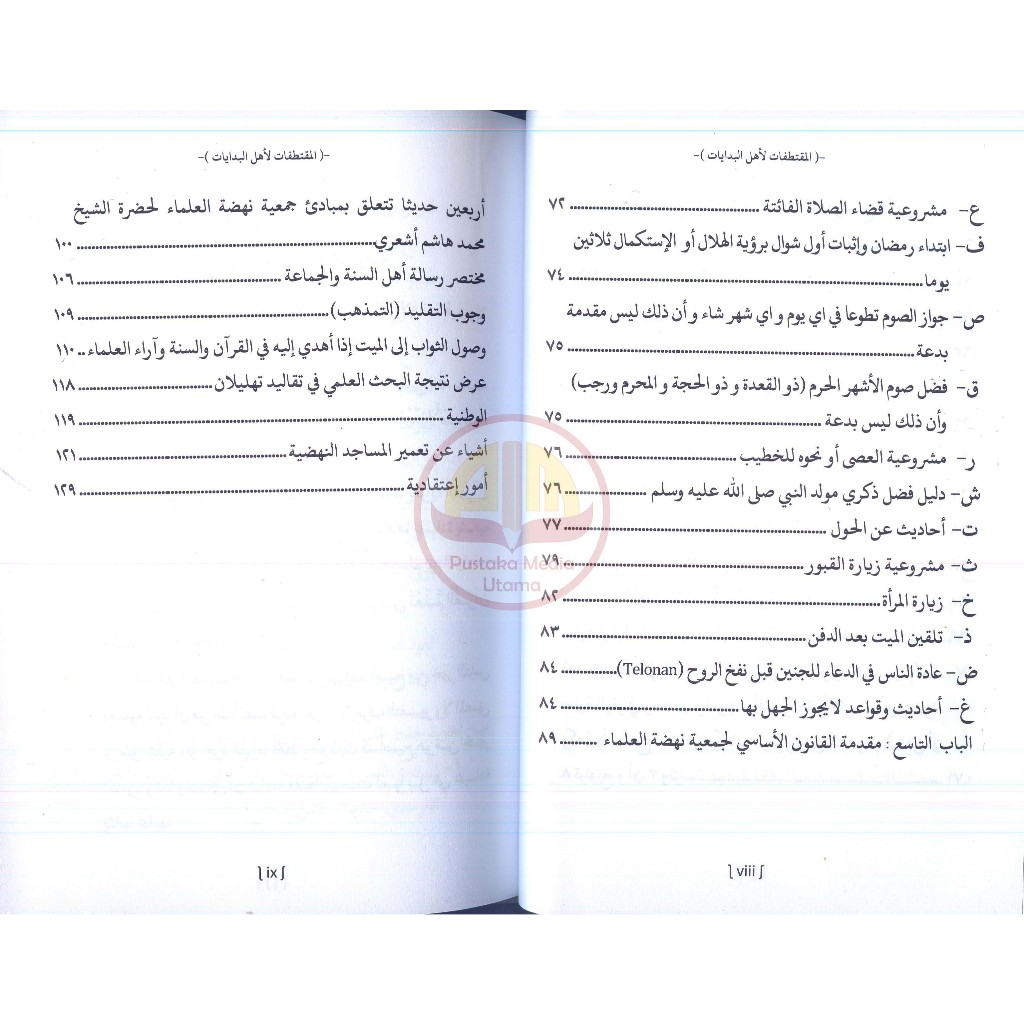 -( المقتطفات لأهل البدايات )-
ع- مشروعية قضاء الصلاة الفائتة ........ ٧٢
ف- ابتداء رمضان وإثبات أول شوال برؤية الهلال أو الإستكمال ثلاثين
يوما ........ ٧٤
ص- جواز الصوم تطوعا في اي يوم و اي شهر شاء و أن ذلك ليس مقدمة
بدعة ........ ٧٥
ق- فضل صوم الأشهر الحرم (ذو القعدة و ذو الحجة و المحرم ورجب)
وأن ذلك ليس بدعة ........ ٧٥
ر- مشروعية العصى أو نحوه للخطيب ........ ٧٦
ش- دليل فضل ذكري مولد النبي صلى الله عليه وسلم ........ ٧٦
ت- أحاديث عن الحول ........ ٧٧
ث- مشروعية زيارة القبور ........ ٧٩
خ- زيارة المرأة ........ ٨٢
ذ- تلقين الميت بعد الدفن ........ ٨٣
ض- عادة الناس في الدعاء للجنين قبل نفخ الروح (Telonan) ........ ٨٤
غ- أحاديث وقواعد لايجوز الجهل بها ........ ٨٤
الباب التاسع : مقدمة القانون الأساسي لجمعية نهضة العلماء ........ ٨٩
viii
-( المقتطفات لأهل البدايات )-
أربعين حديثا تتعلق بمبادئ جمعية نهضة العلماء لحضرة الشيخ
محمد هاشم أشعري ........ ١٠٠
مختصر رسالة أهل السنة والجماعة ........ ١٠٦
وجوب التقليد (التمذهب) ........ ١٠٩
وصول الثواب إلى الميت إذا أهدي إليه في القرآن والسنة وآراء العلماء .. ١١٠
عرض نتيجة البحث العلمي في تقاليد تهليلان ........ ١١٨
الوطنية ........ ١١٩
أشياء عن تعمير المساجد النهضية ........ ١٢١
أمور إعتقادية ........ ١٢٩
ix
Pustaka Media
Utama